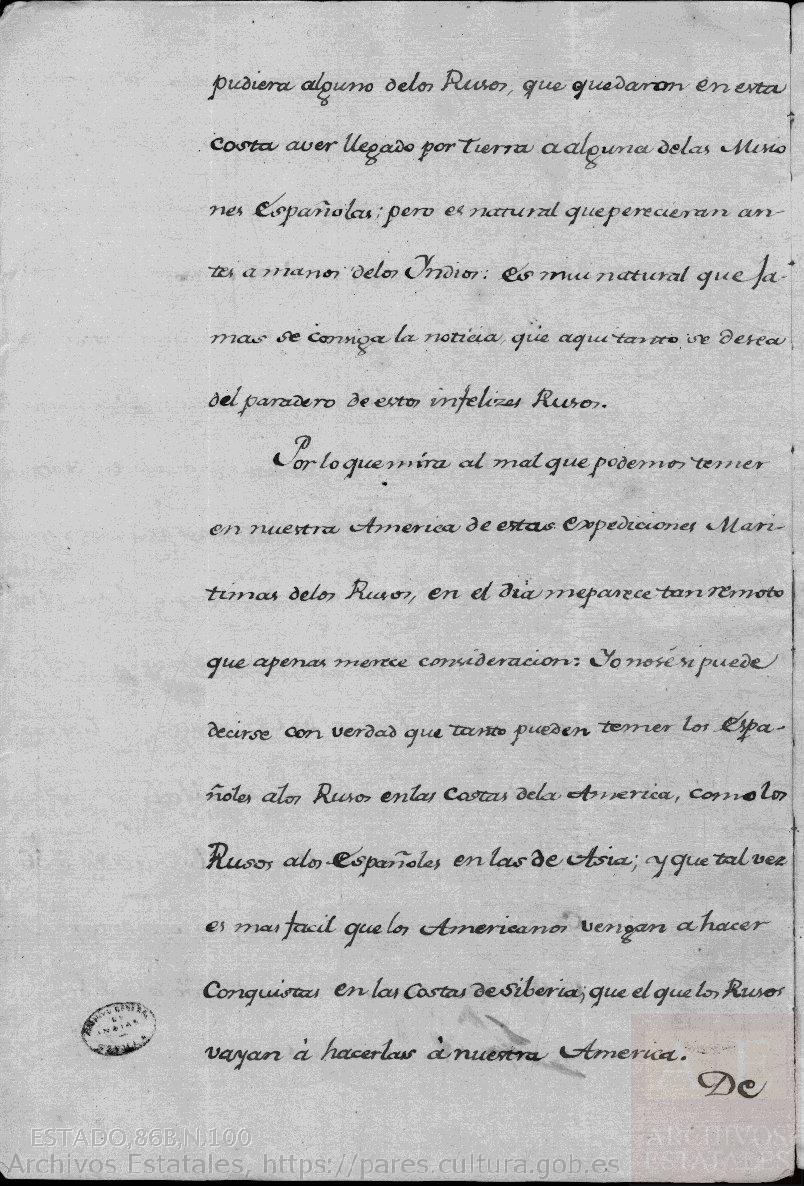 pudiera alguno delos Rusos, que quedaron en esta
costa aver llegado por tierra a alguna delas Misio
nes Españolas; pero es natural que perecieran an-
tes a manos delos Yndios: es mui natural que Ja-
mas se consiga la noticia, que aqui tanto se desea
del paradero de estos infelizes Rusos.
Por lo que mira al mal que podemos temer
en nuestra America de estas expediciones Mari-
timas delos Rusos, en el dia me parece tan remoto
que apenas merece consideracion: Yo no sé si puede
decirse con verdad que tanto pueden temer los Espa-
ñoles alos Rusos en las Costas dela America, como los
Rusos alos Españoles en las de Asia; y que tal vez
es mas facil que los Americanos vengan a hacer
Conquistas en las Costas de Siberia, que el que los Rusos
vayan à hacerlas à nuestra America.
De
ARCHIVO GENERAL
DE
INDIAS
SEVILLA
ESTADO,86B,N.100
Archivos Estatales, https://pares.cultura.gob.es
ARCHIVOS
ESTATALES